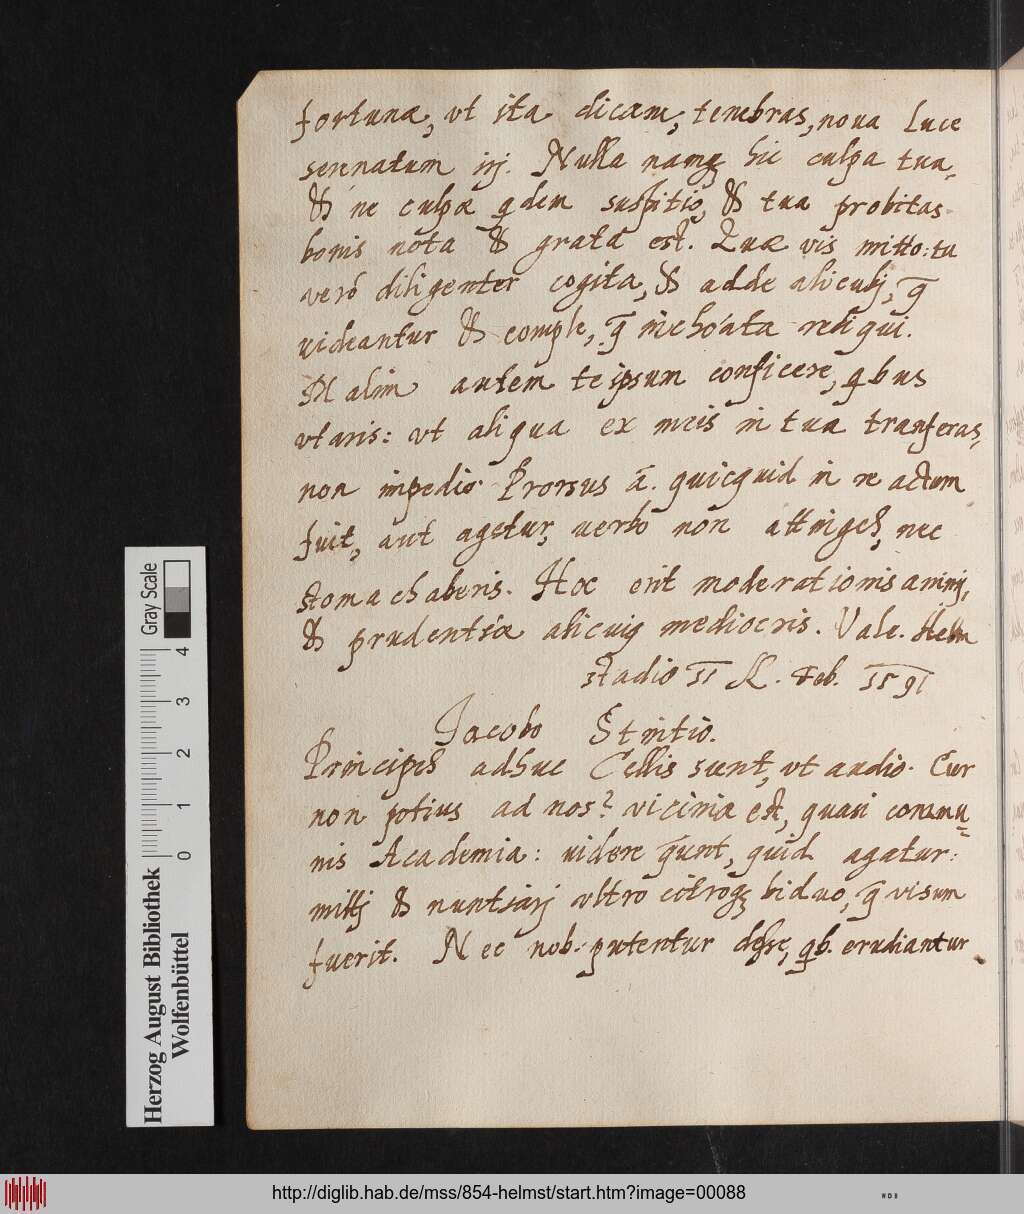 fortunæ, vt ita dicam, tenebras, noua Luce
serenatum irj. Nulla namq3 hic culpa tua,
& ne culpæ qdem suspitio, & tua probitas
bonis nota & grata est. Quæ vis mitto: tu
verò diligenter cogita, & adde alicubj, q̄
videantur & comple, q̄ inchoata reliqui.
Malim autem teipsum conficere, qbus
vtaris: vt aliqua ex meis in tua tranferas,
non impedio. Prorsus ā. quicquid in re actum
fuit, aut agetur, verbo non attinges, nec
stomachaberis. Hoc erit moderationis animj,
& prudentiæ alicuiq mediocris. Vale. Helm
stadio 11 K. Feb. 1591
Jacobo Strintio.
Principes adhuc Cellis sunt, vt audio. Cur
non potius ad nos? vicinia est, quasi commu=
nis Academia: videre q̄unt, quid agatur:
mittj & nuntiarj vltro citroq3 biduo, q̄ visum
fuerit. Nec nob. putentur deesse, qb. erudiantur
Gray Scale
4
3
2
1
0
Herzog August Bibliothek
Wolfenbüttel
http://diglib.hab.de/mss/854-helmst/start.htm?image=00088
WDB